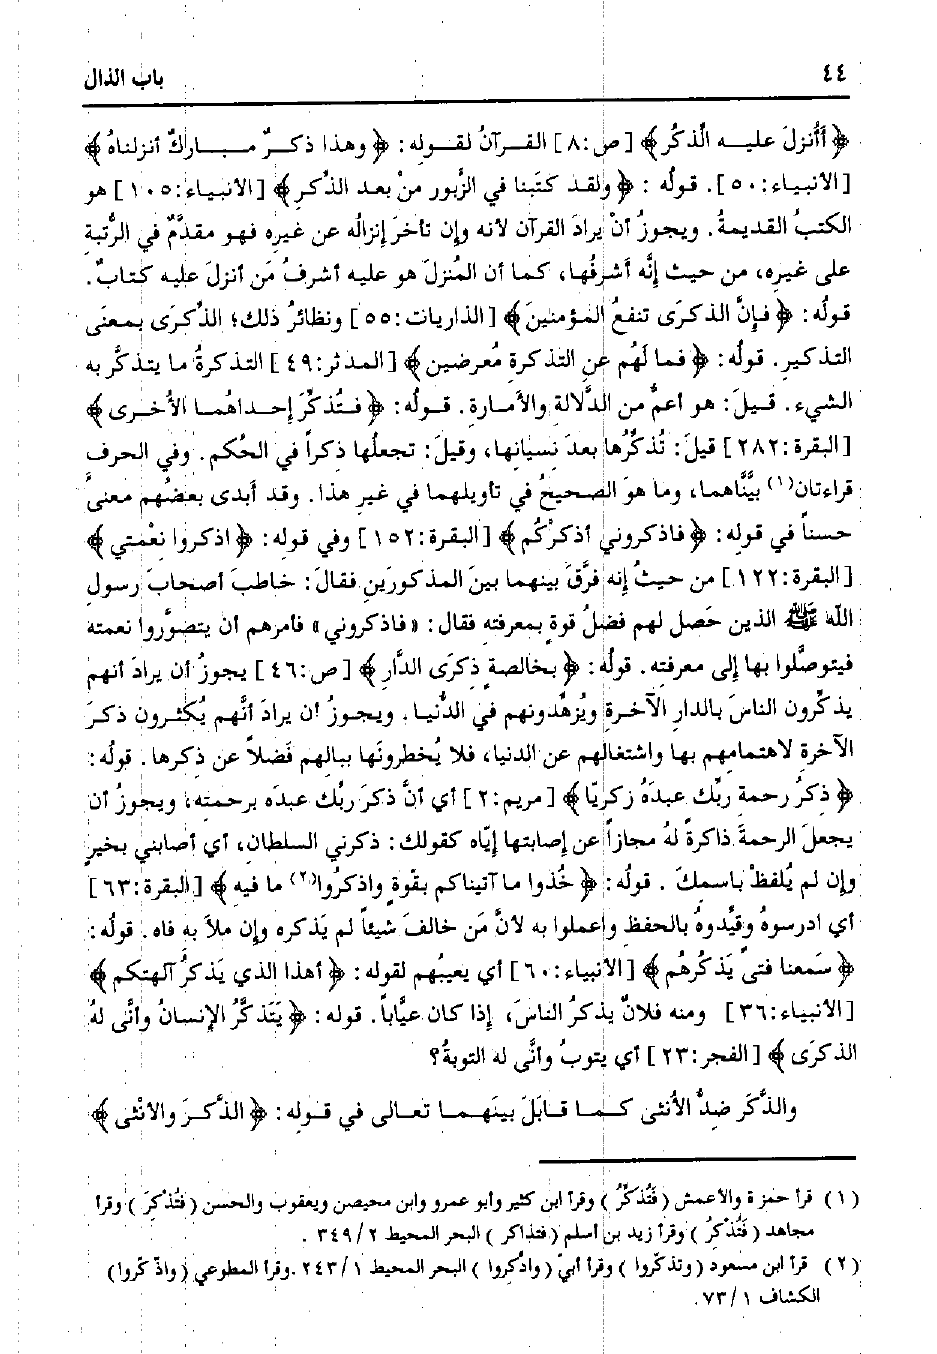 ٤٤ باب الذال
﴿ أَأُنزلَ عليه الذّكرُ ﴾ [ص:٨] القرآنُ لقوله: ﴿ وهذا ذكرٌ مباركٌ أنزلناهُ ﴾
[الأنبياء:٥٠]. قولُه: ﴿ ولقد كتَبنا في الزَّبور منْ بعد الذِّكرِ ﴾ [الأنبياء:١٠٥] هو
الكتبُ القديمةُ. ويجوزُ أنْ يرادَ القرآن لأنه وإن تأخرَ إنزالُه عن غيرِه فهو مقدَّمٌ في الرُّتبة
على غيرِه، من حيث إنَّه أشرفُها، كما أن المُنزلَ هو عليه أشرفُ مَن أنزلَ عليه كتابٌ.
قولُه: ﴿ فإنَّ الذكرَى تنفعُ المؤمنينَ ﴾ [الذاريات:٥٥] ونظائرُ ذلك؛ الذكرَى بمعنَى
التذكيرِ. قولُه: ﴿ فما لَهُم عنِ التذكرة مُعرضين ﴾ [المدثر:٤٩] التذكرةُ ما يتذكَّر به
الشيء. قيلَ: هو أعمُّ من الدَّلالة والأمارة. قولُه: ﴿ فتُذكِّرَ إحداهُما الأُخرى ﴾
[البقرة:٢٨٢] قيلَ: تُذكِّرُها بعدَ نسيانها، وقيلَ: تجعلُها ذكراً في الحُكم. وفي الحرف
قراءتان(١) بيَّنَّاهما، وما هوَ الصحيحُ في تأويلهما في غيرِ هذا. وقد أبدى بعضُهم معنىً
حسناً في قوله: ﴿ فاذكروني أذكرْكُم ﴾ [البقرة:١٥٢] وفي قولِه: ﴿ اذكروا نعْمتي ﴾
[البقرة:١٢٢] من حيثُ إنه فرَّقَ بينهما بينَ المذكورَينِ فقالَ: خاطبَ أصحابَ رسولِ
الله ﷺ الذين حَصل لهم فضلُ قوةٍ بمعرفته فقال: «فاذكروني» فأمرَهم أن يتصوَّروا نعمته
فيتوصَّلوا بها إلى معرفتِه. قولُه: ﴿ بخالصةٍ ذكرَى الدَّارِ ﴾ [ص:٤٦] يجوزُ أن يرادَ أنهم
يذكِّرون الناسَ بالدارِ الآخرةِ ويُزهِّدونهم في الدُّنيا. ويجوزُ أن يرادَ أنَّهم يُكثرون ذكرَ
الآخرة لاهتمامِهم بها واشتغالهم عن الدنيا، فلا يُخطرونَها ببالهم فَضلاً عن ذكرها. قولُه:
﴿ ذكرُ رحمة ربِّك عبدَهُ زكريّا ﴾ [مريم:٢] أي أنَّ ذكرَ ربُّك عبدَه برحمته، ويجوزُ أن
يجعلَ الرحمةَ ذاكرةً لهُ مجازاً عن إصابتها إيّاه كقولك: ذكرني السلطان، أي أصابني بخيرٍ
وإن لم يُلفظْ باسمكَ. قولُه: ﴿ خُذوا ما آتيناكم بقُوةٍ واذكرُوا(٢) ما فيه ﴾ [البقرة:٦٣]
أي ادرسوهُ وقيِّدوهُ بالحفظِ واعملوا به لأنَّ مَن خالفَ شيئاً لم يَذكره وإن ملأ به فاه. قولُه:
﴿ سَمعنا فتىً يَذكرُهُم ﴾ [الأنبياء:٦٠] أي يعيبُهم لقوله: ﴿ أهذا الذي يَذكرُ آلهتكم ﴾
[الأنبياء:٣٦] ومنه فلانٌ يذكرُ الناسَ، إذا كان عيَّاباً. قوله: ﴿ يَتَذكَّرُ الإنسانُ وأنَّى لهُ
الذكرَى ﴾ [الفجر:٢٣] أي يتوبُ وأنَّى له التوبةُ؟
والذَّكَر ضدُّ الأنثى كما قابَلَ بينَهما تعالى في قوله: ﴿ الذَّكرَ والأنْثى ﴾
(١) قرأ حمزة والأعمش (فَتُذكِّرُ) وقرأ ابن كثير وأبو عمرو وابن محيصن ويعقوب والحسن (فتُذْكِرَ) وقرأ
مجاهد (فَتُذْكِرُ) وقرأ زيد بن أسلم (فتذاكر) البحر المحيط ٢/٣٤٩.
(٢) قرأ ابن مسعود (وتذكّروا) وقرأ أبيّ (واذْكُروا) البحر المحيط ١/٢٤٣. وقرأ المطوعي (واذّكّروا)
الكشاف ١/٧٣.